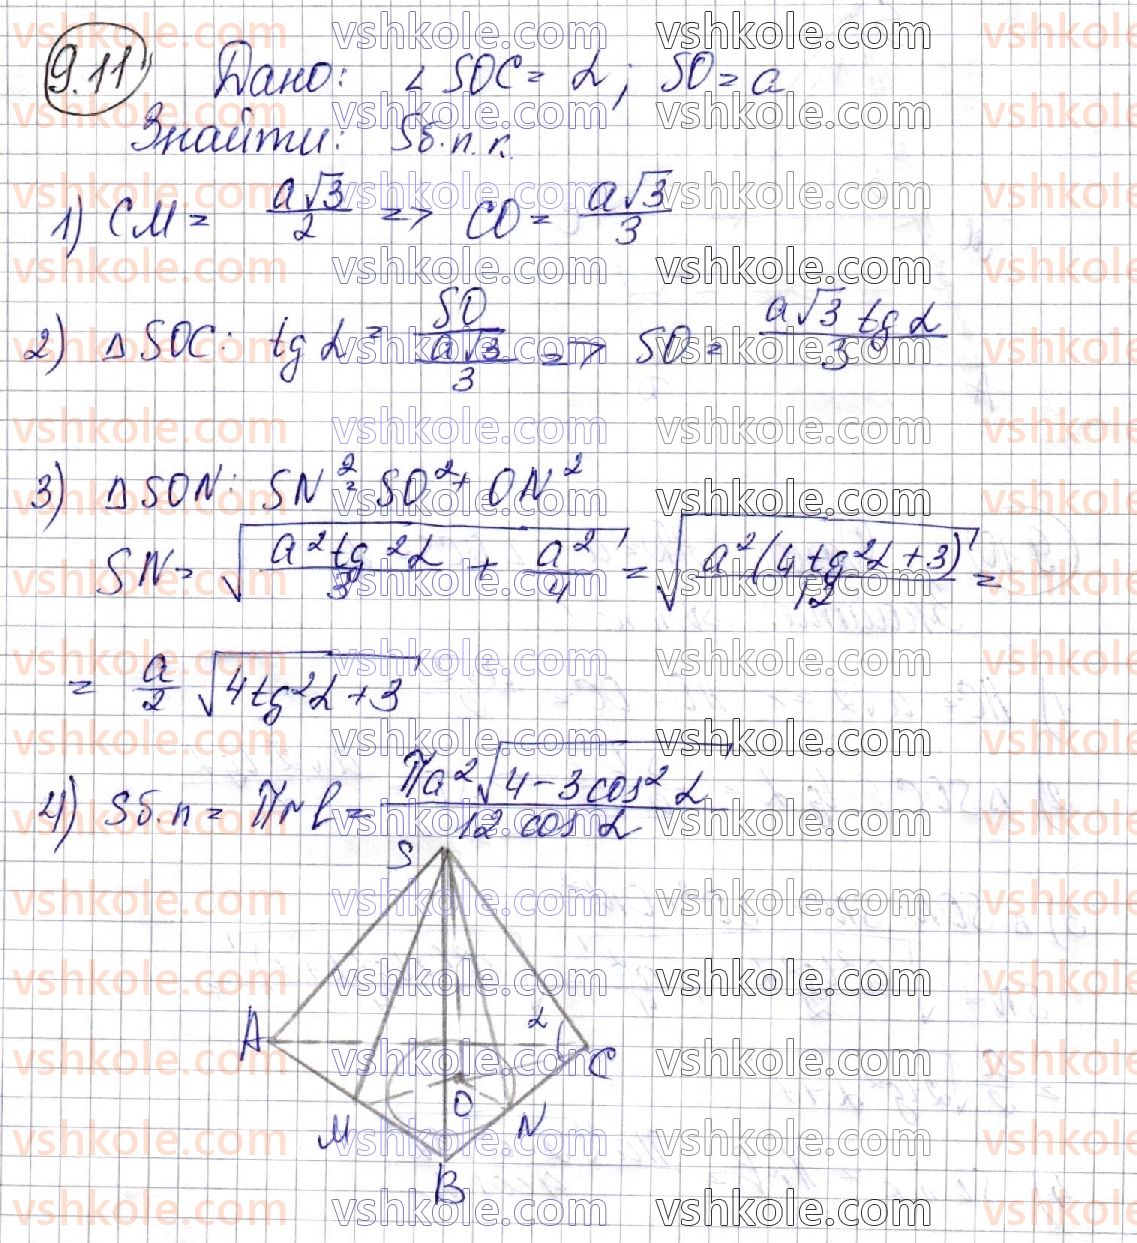 9.11 Дано: ∠ SOC = α; SO = a
Знайти: Sб.п.к.
1) CM = a√3/2 => CO = a√3/3
2) Δ SOC: tg α = SO/(a√3/3) => SO = a√3 tg α/3
3) Δ SON: SN² = SO² + ON²
SN = √(a² tg² α/3 + a²/4) = √(a²(4tg²α + 3)/12) =
= a/2 √(4tg²α + 3)
4) Sб.п = πrl = πa²√(4 - 3cos² α)/(12 cos α)
S
A
α
C
O
M
N
B
vshkole.com